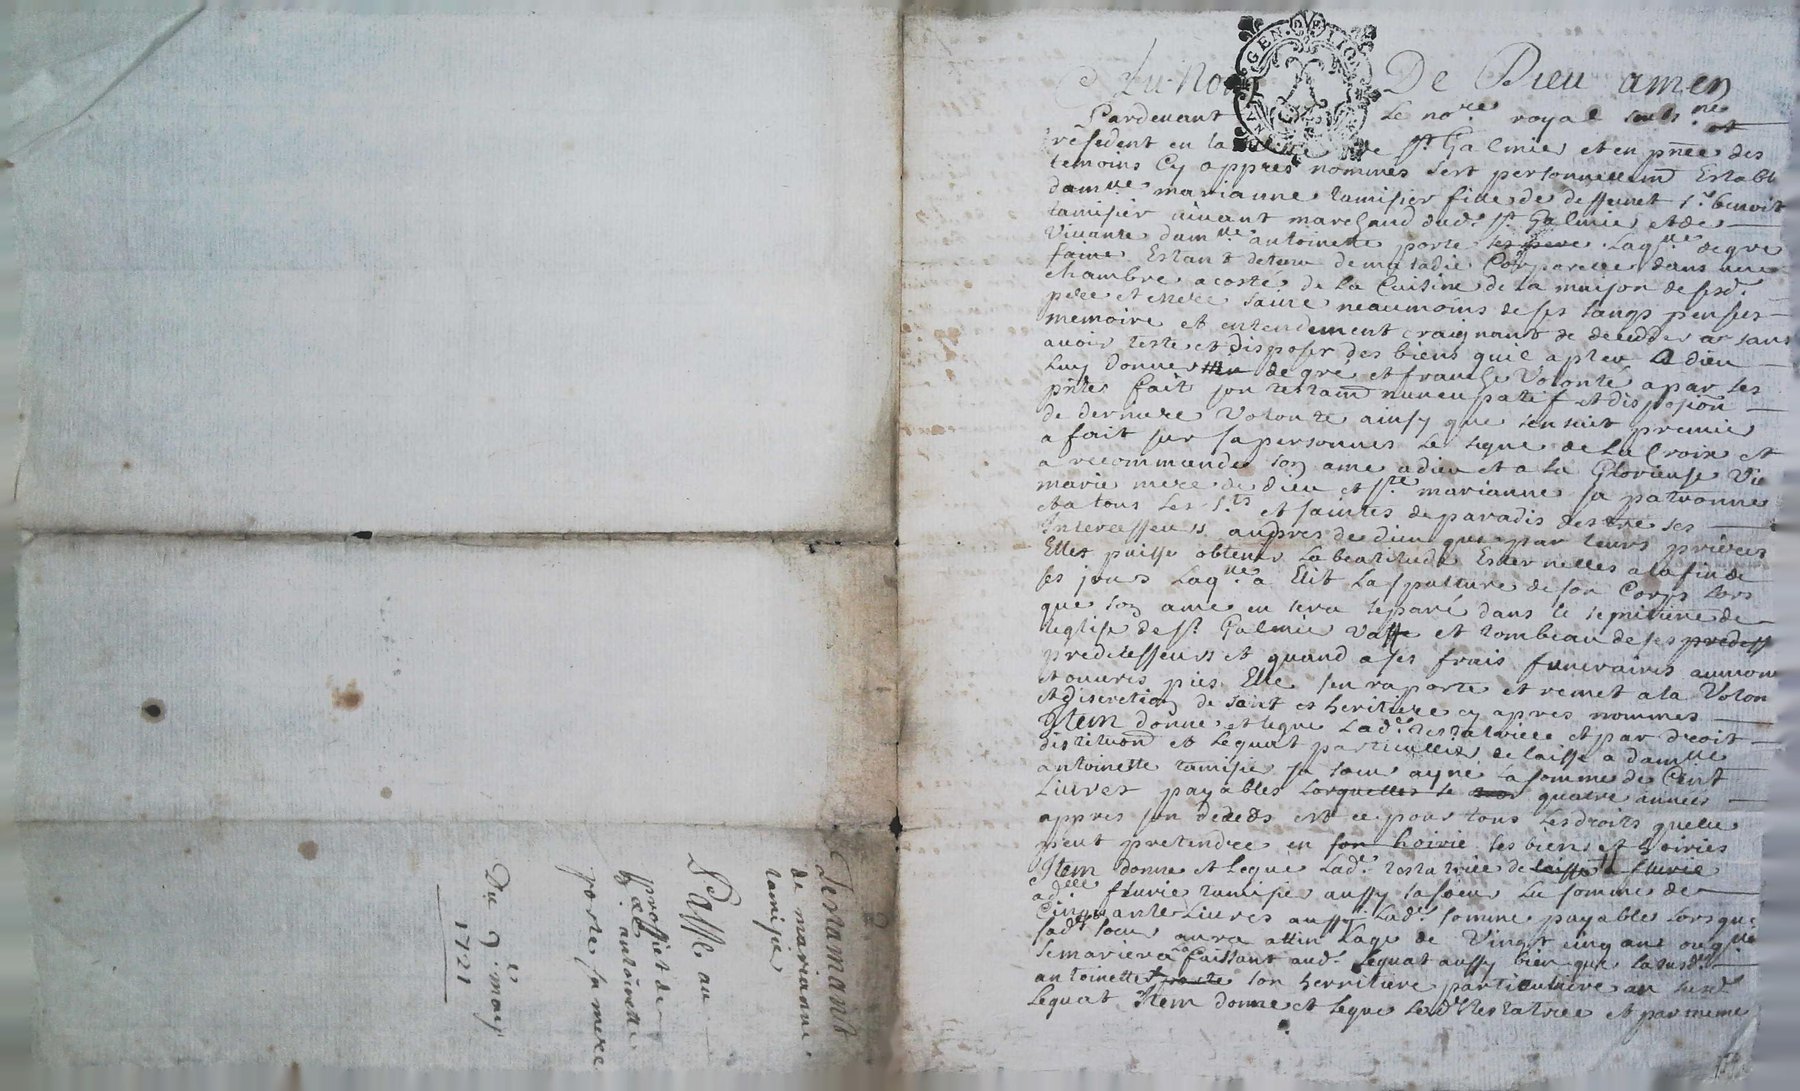 Testamant
de marianne
tamisier
Passé au
proffict de
antoinette
porte sa mere
Du 9e mars
1721
GEN. DE LIO
Au Nom De Dieu amen
Pardevant Le nore. royal soubsne. et
resident en la de St Galmier et en pnce des
temoins Cy appres nommes sest personnellemt Establ
damlle marianne tamisier fille de deffunct sr benoit
tamisier vivant marchand dud. St Galmier et de
Vivante damlle antoinette porte ses pere laqlle de gre
faine Estant detenu de maladie Corporelle dans une
chambre a costé de la Cuisine de la maison de sesd.
pere et mere saine neaumoins de ses sangs penses
memoire et entendement craignant de deceder sans
avoir testé et disposer des biens quil a pleu a dieu
luy donner de gre et franche Volonté a par ses
pntes fait son testamt nuncupatif et disposion
de derniere Volonte ainsy que sensuit premie
a fait sur sa personnes le signe de la Croix et
a recommande son ame a dieu et a la Glorieuse Vie
marie mere de dieu et ste marianne sa patronne
et a tous les sts et saintes de paradis destre ses
Intercesseurs aupres de dieu que par leurs prieres
Elles puisse obtenir la beatitude Eternelles a la fin de
ses jours Laqlle a Elit la spulture de son Corps lors
que son ame en sera separé dans le semitiere de
leglise de St Galmier vasse et tombeau de ses predess
predecesseurs et quand a ses frais funeraires aumon
et ouvres pies Elle sen raporte et remet a la Volon
et discretion de saint et heritiere cy apres nommes
Item donne et legue Lade. testatrice et par droit
distitution et Legat particullier delaisse a damlle
antoinette tamisier sa soeur ayné la somme de Cent
Livres payables lorsquelles se quatre années
appres son decedz et ce pour tous les droits quelle
peut pretendre en son hoirie les biens et hoiries
Item donne et Legue Lade. testatrice delaisse a fluvie
a dlle flurie tamisier aussy sa soeur La somme de
Cinquante Livres aussy Lade. somme payables Lorsque
sade soeur aura attin Lage de Vingt cinq ans ou qlle
se mariera faissant aud. Legat aussy bien que lasusde.
antoinette porte son herritiere particulliere au susd.
Legat Item donne et Legue Lade testatrice et par meme